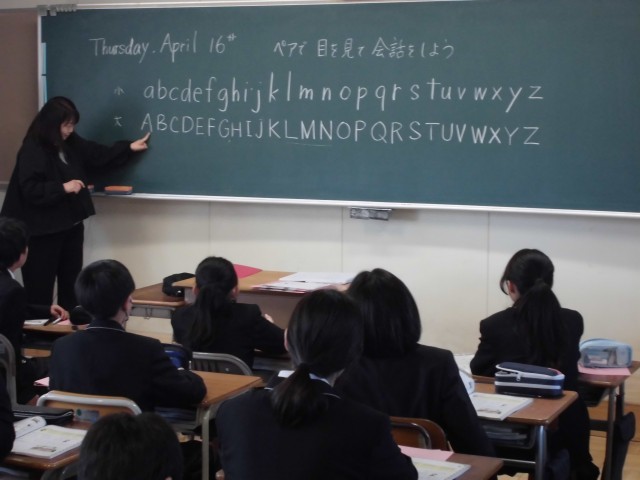 Thursday. April 16th ペアで 目を見て 会話をしよう
小 abcdefghijklmnopqrstuvwxyz
大 ABCDEFGHIJKLMNOPQRSTUVWXYZ